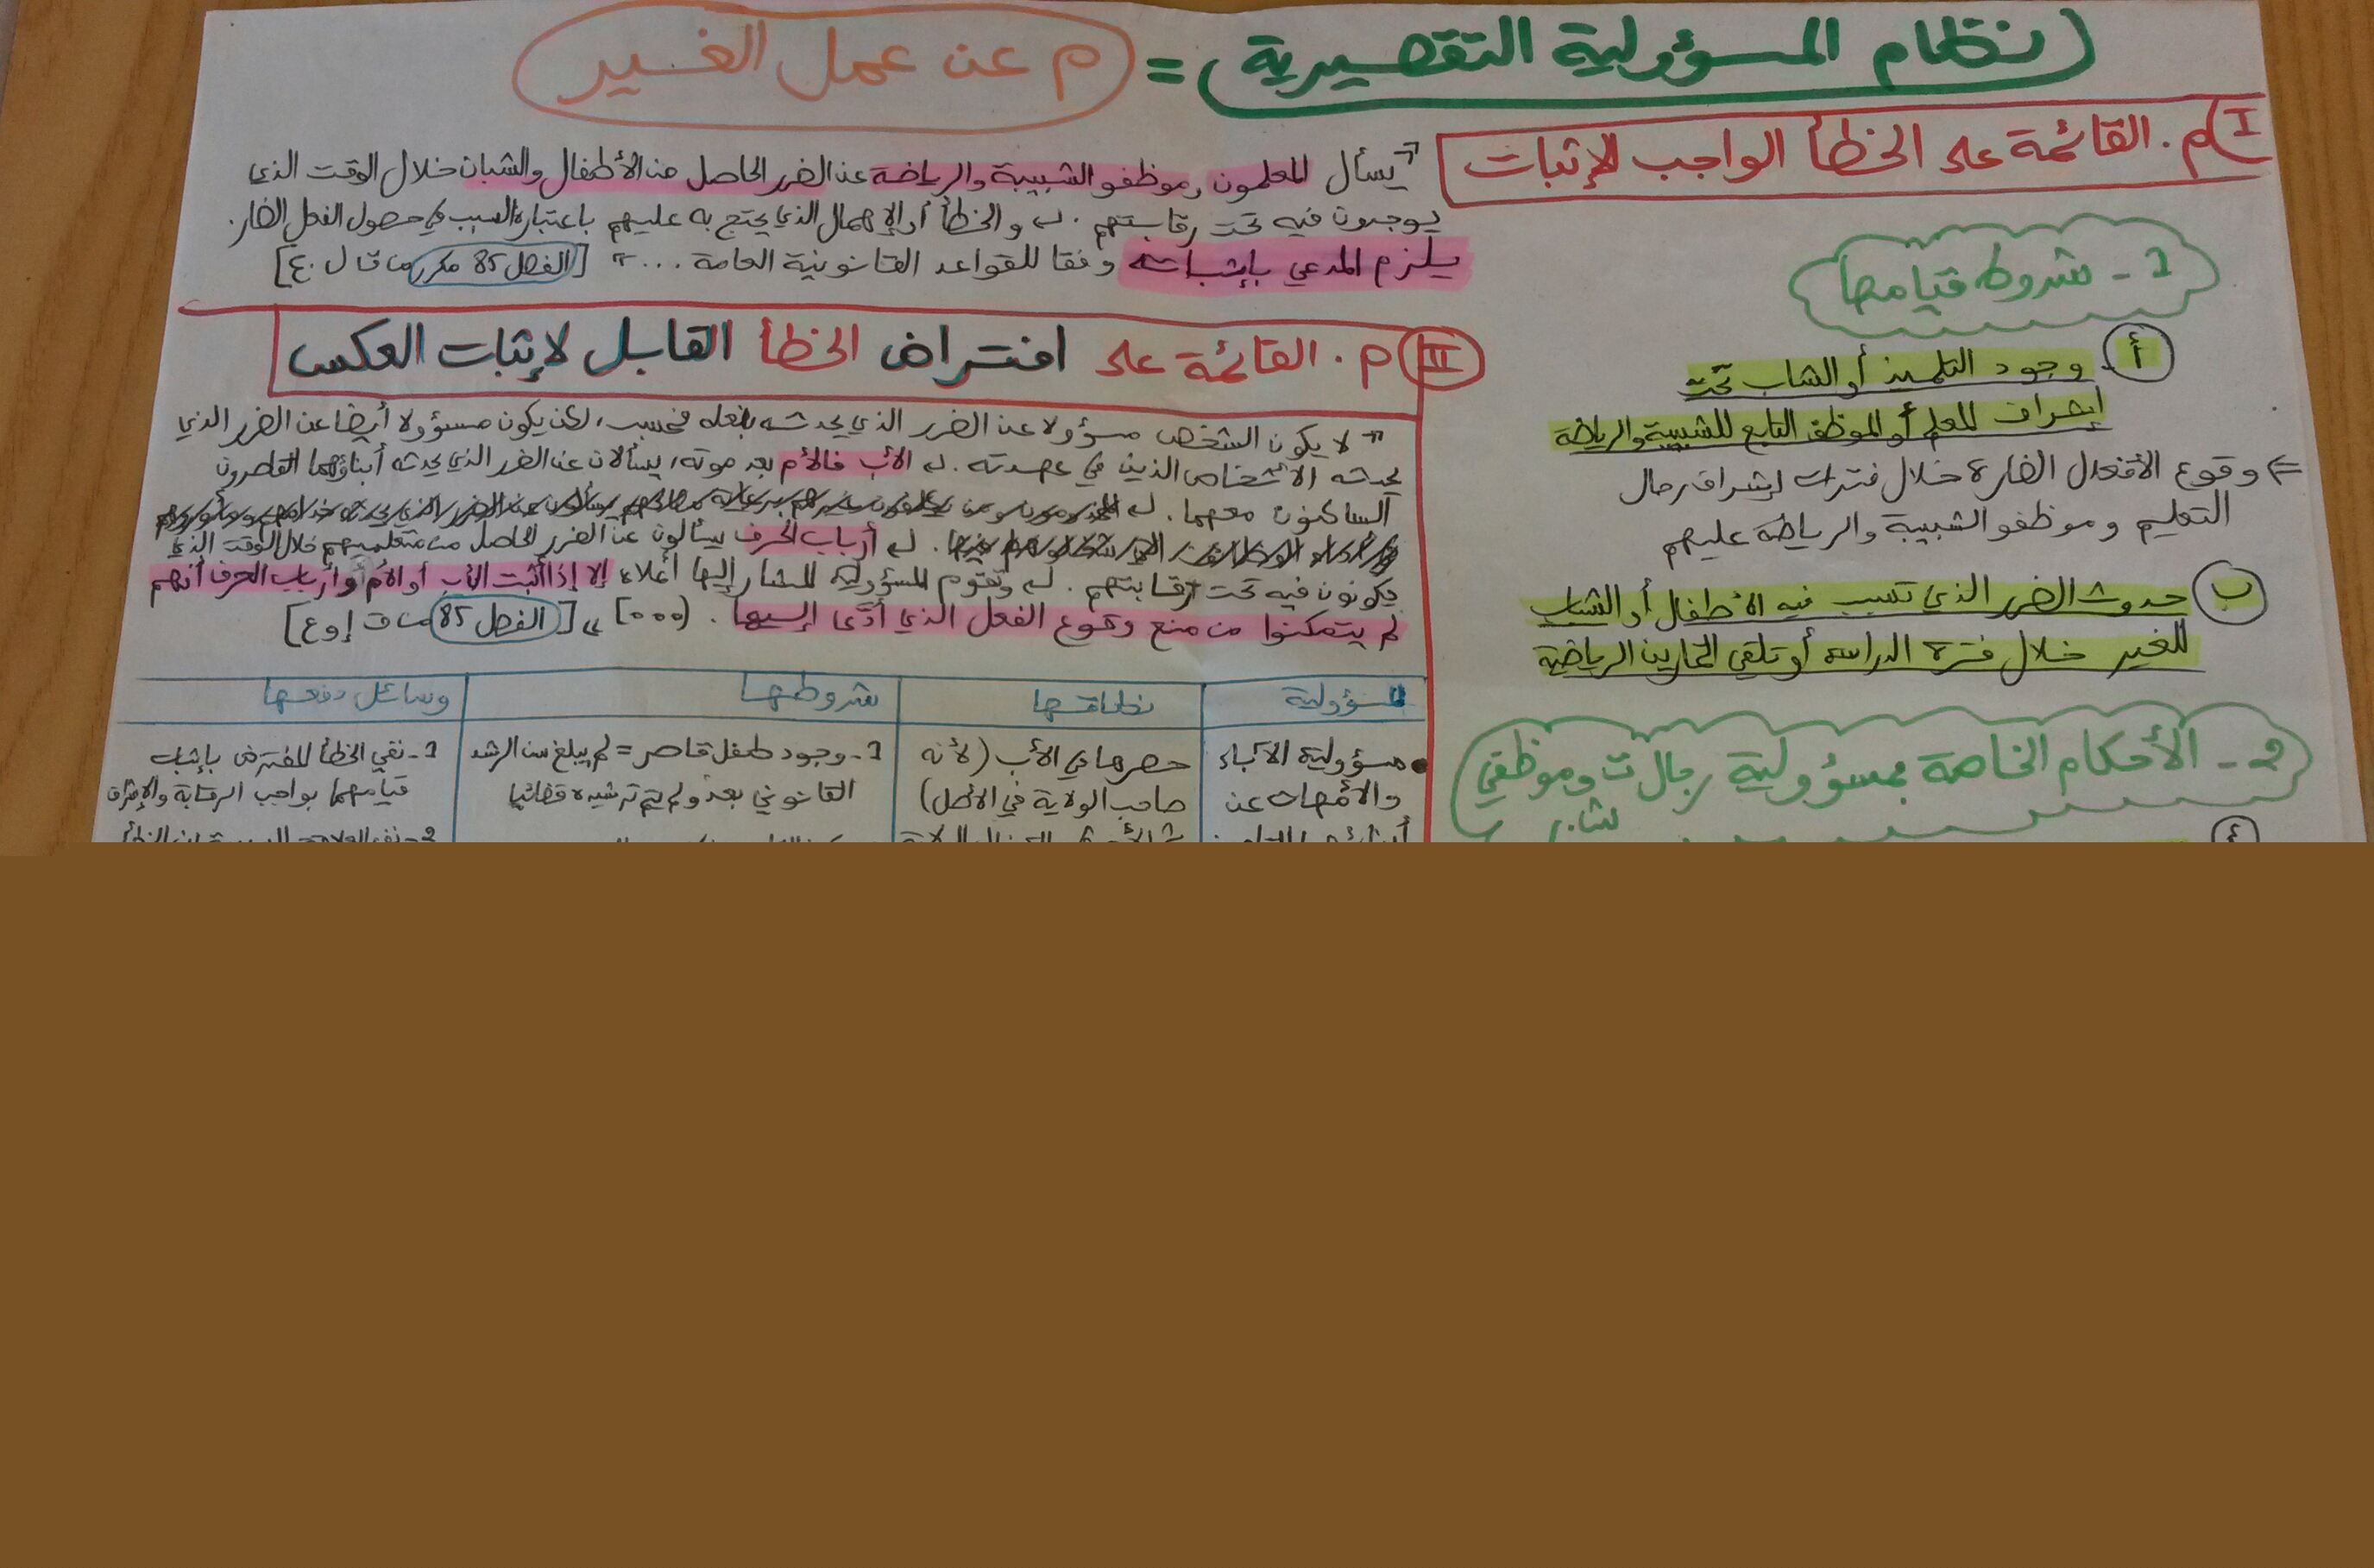 نظام المسؤولية التقصيرية = م عن عمل الغير
I) م. القائمة على الخطأ الواجب الإثبات
"يسأل المعلمون وموظفو الشبيبة والرياضة عن الضرر الحاصل من الأطفال والشبان خلال الوقت الذي
يوجدون فيه تحت رقابتهم. والخطأ أو الإهمال الذي يحتج به عليهم باعتباره السبب في حصول الفعل الضار.
يلزم المدعي بإثباته وفقا للقواعد القانونية العامة ..." [الفصل 85 مكرر من ق ل.ع]
1 - شروط قيامها
أ وجود التلميذ أو الشاب تحت
إشراف المعلم أو الموظف التابع للشبيبة والرياضة
⇐ وقوع الأفعال الضارة خلال فترات إشراف رجال
التعليم وموظفو الشبيبة والرياضة عليهم
ب حدوث الضرر الذي تسبب فيه الأطفال أو الشباب
للغير خلال فترة الدراسة أو تلقي التمارين الرياضية
2 - الأحكام الخاصة بمسؤولية رجال ت وموظفي
II م. القائمة على افتراض الخطأ القابل لإثبات العكس
"لا يكون الشخص مسؤولا عن الضرر الذي يحدثه بفعله فحسب، لكن يكون مسؤولا أيضا عن الضرر الذي
يحدثه الأشخاص الذين في عهدته. الأب فالأم بعد موته، يسألان عن الضرر الذي يحدثه أبناؤهما القاصرون
الساكنون معهما.
أرباب الحرف يسألون عن الضرر الحاصل من متعلميهم خلال الوقت الذي
يكونون فيه تحت رقابتهم. وتقوم المسؤولية المشار إليها أعلاه إلا إذا أثبت الأب أو الأم وأرباب الحرف أنهم
لم يتمكنوا من منع وقوع الفعل الذي أدى إليها. (...)" [الفصل 85 من ق إ و ع]
المسؤولية نطاقها شروطها وسائل دفعها
• مسؤولية الآباء
والأمهات عن
حصرها في الأب (لأنه
صاحب الولاية في الأصل)
1 - وجود طفل قاصر = لم يبلغ سن الرشد
القانوني بعد ولم يتم ترشيده قضائيا
1 - نفي الخطأ المفترض بإثبات
قيامهما بواجب الرقابة والإشراف